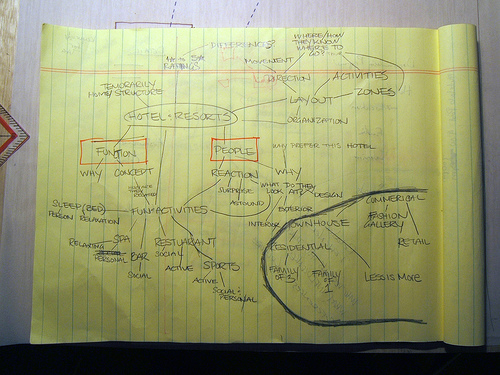 DIFFERENCES?
WHERE/HOW
THEY KNOW
WHERE TO
GO?
RATINGS
MOVEMENT
DIRECTION
ACTIVITIES
TEMORARILY
HOME/STRUCTURE
LAYOUT
ZONES
HOTEL + RESORTS
ORGANIZATION
FUNTION
PEOPLE
WHY PREFER THIS HOTEL
WHY
CONCEPT
REACTION
WHY
SURPRISE
WHAT DO THEY
LOOK AT?
DESIGN
SLEEP (BED)
PERSON
RELAXATION
FUN+ACTIVITIES
EXTERIOR
INTERIOR
TOWNHOUSE
COMMERICAL
FASHION
GALLERY
RETAIL
RELAXING
SPA
PERSONAL
BAR
SOCIAL
RESTUARANT
SOCIAL
ACTIVE
SPORTS
ACTIVE
SOCIAL+
PERSONAL
RESIDENTIAL
FAMILY
OF 3
FAMILY
OF
1
LESS IS MORE